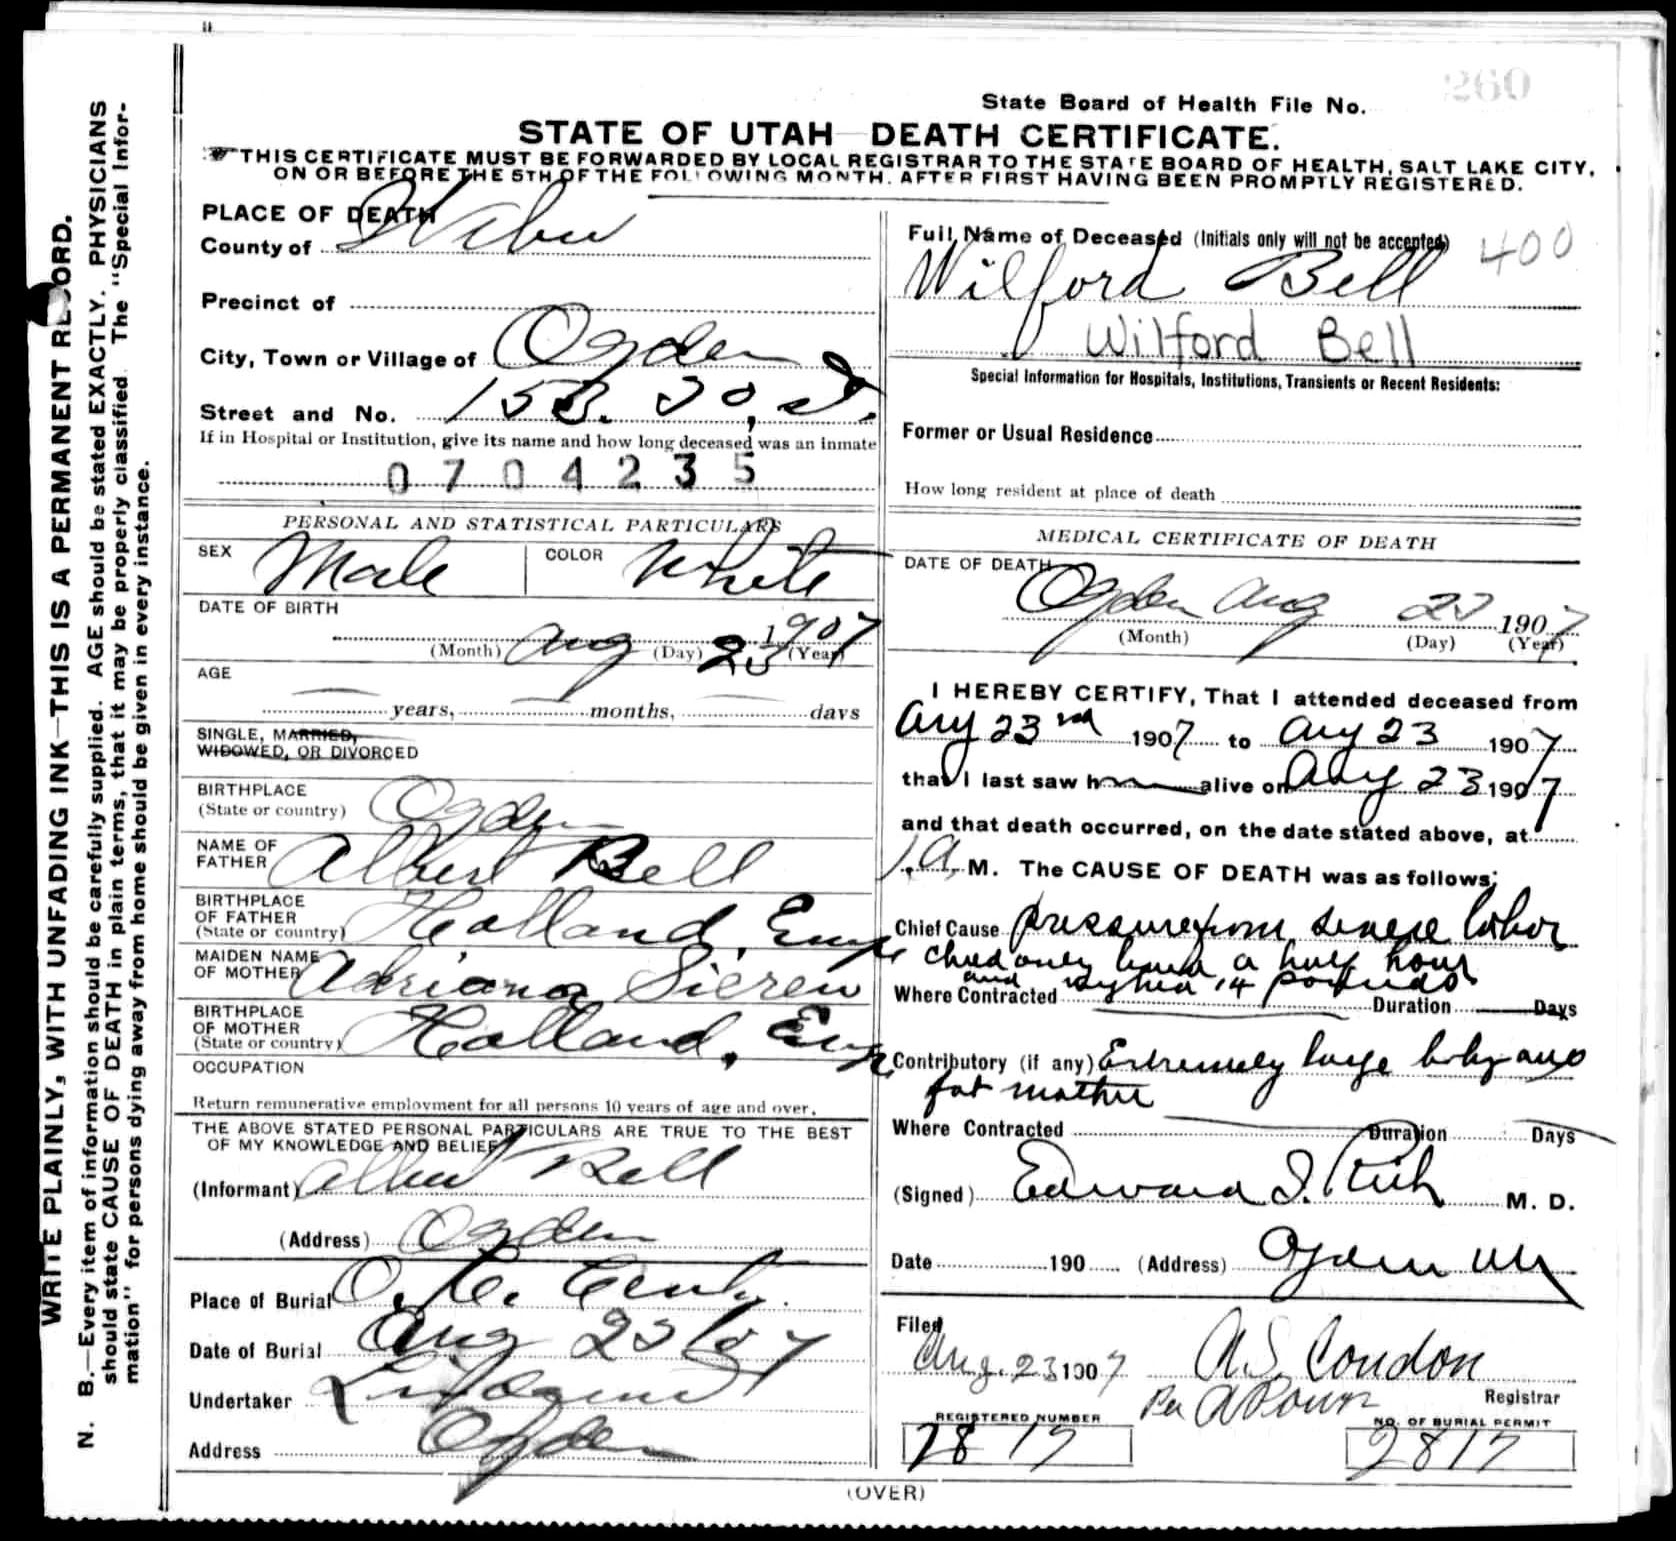 260
State Board of Health File No.
STATE OF UTAH DEATH CERTIFICATE.
THIS CERTIFICATE MUST BE FORWARDED BY LOCAL REGISTRAR TO THE STATE BOARD OF HEALTH, SALT LAKE CITY,
ON OR BEFORE THE 5TH OF THE FOLLOWING MONTH. AFTER FIRST HAVING BEEN PROMPTLY REGISTERED.
WRITE PLAINLY, WITH UNFADING INK—THIS IS A PERMANENT RECORD.
N. B.—Every item of information should be carefully supplied. AGE should be stated EXACTLY. PHYSICIANS
should state CAUSE OF DEATH in plain terms, that it may be properly classified. The "Special Infor-
mation" for persons dying away from home should be given in every instance.
PLACE OF DEATH
County of Weber
Precinct of
City, Town or Village of Ogden
Street and No.
If in Hospital or Institution, give its name and how long deceased was an inmate
0704235
PERSONAL AND STATISTICAL PARTICULARS
SEX Male COLOR White
DATE OF BIRTH
(Month) Aug (Day) 23 1907 (Year)
AGE
years, months, days
SINGLE, MARRIED,
WIDOWED, OR DIVORCED
BIRTHPLACE
(State or country) Ogden
NAME OF
FATHER Albert Bell
BIRTHPLACE
OF FATHER
(State or country) Holland,
MAIDEN NAME
OF MOTHER Adriana Sieren
BIRTHPLACE
OF MOTHER
(State or country) Holland,
OCCUPATION
Return remunerative employment for all persons 10 years of age and over.
THE ABOVE STATED PERSONAL PARTICULARS ARE TRUE TO THE BEST
OF MY KNOWLEDGE AND BELIEF
(Informant) Albert Bell
(Address) Ogden
Place of Burial O. C.
Date of Burial Aug 23/07
Undertaker
Address Ogden
Full Name of Deceased (Initials only will not be accepted) 400
Wilford Bell
Wilford Bell
Special Information for Hospitals, Institutions, Transients or Recent Residents:
Former or Usual Residence
How long resident at place of death
MEDICAL CERTIFICATE OF DEATH
DATE OF DEATH
Ogden Aug 23 1907
(Month) (Day) (Year)
I HEREBY CERTIFY, That I attended deceased from
Aug 23rd 1907 to Aug 23 1907
that I last saw h alive on Aug 23 1907
and that death occurred, on the date stated above, at
1 A. M. The CAUSE OF DEATH was as follows:
Chief Cause pressure from severe labor
child only lived a half hour
and weighed 14 pounds
Where Contracted Duration Days
Contributory (if any) Extremely large baby and
fat mother
Where Contracted Duration Days
(Signed) Edward I. Rich M. D.
Date 190 (Address) Ogden Ut
Filed
Aug. 23 1907 A.S. Condon
Per
Registrar
REGISTERED NUMBER
2817
NO. OF BURIAL PERMIT
2817
(OVER)